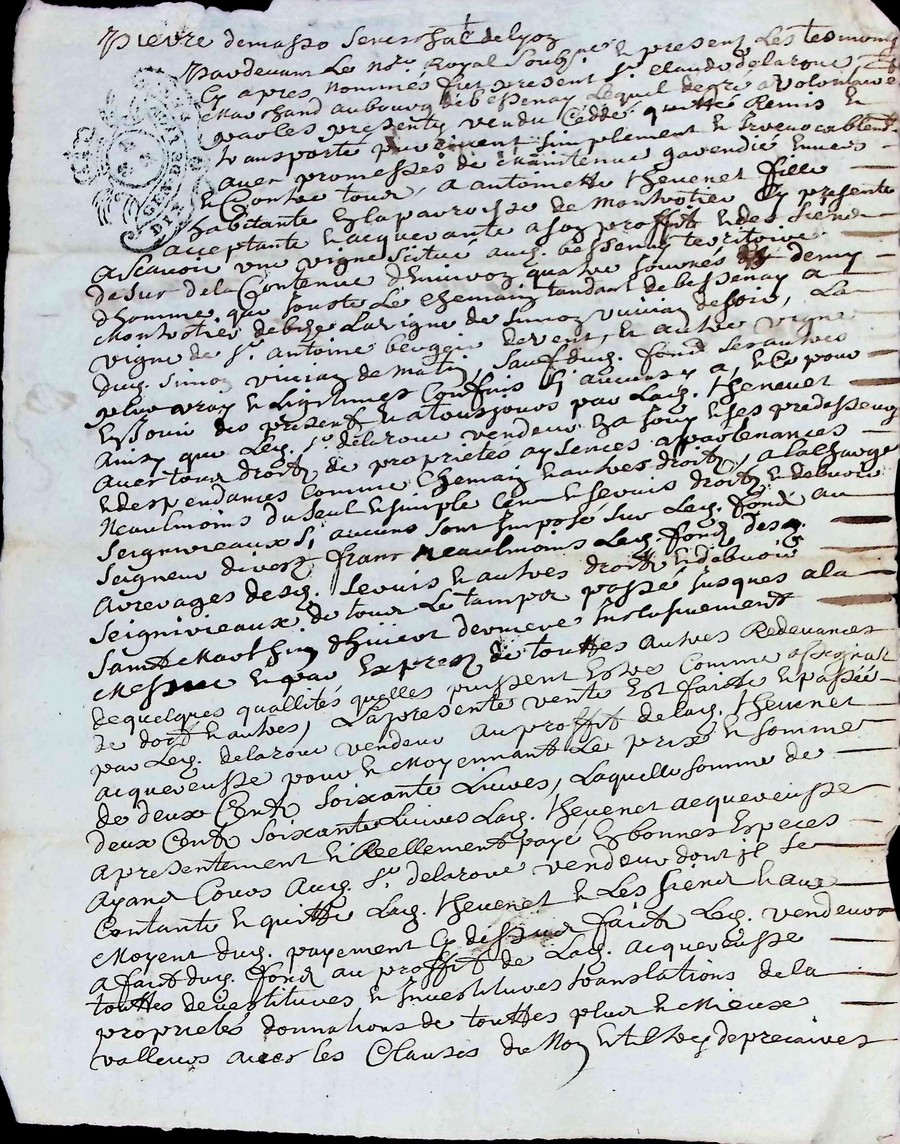 Pierre demasso senesshal de lyon
Pardevant Le no.re Royal soubz.né & present Les tesmoings
Cy apres nommés fut present s.r claude delaroue
Marchand au bourg de bessenay Lequel de gré a volontairé
par les presentes vendu Ceddé quitté Remis &
transporté purement simplement & Irrevocablemt
avec promesses de maintenue garendie Envers
& Contre tous, a antoinette thevenet fille
habitante En la parroisse de Montrotier Cy presente
acceptante & acquerante a son proffit & des siens
ascavoir une vigne scitué aud. bessenay territoire
de sur de la Contenue d'Environ quatre journes & demy
d'homme, qui jouste Le chemain tandant de bessenay a
Montrotier de bize La vigne de simon vivian de soir, La
vigne de s.r antoine bergier de vent, & autre vigne
dud. simon vivian de matin, sauf dud. fond ses autres
plus vrays & Legitimes Confins sy aucuns y a, & Ce pour
En Jouir des present & a tousjours par Lad. thevenet
ainsy que Led. s.r delaroue vendeur En a jouy & ses predesseurs
avec tous droits de proprietés aysences appartenances
& despendances comme Chemain & autres droits, a la charge
Neaulmoins du seul & simple Cens & servis droits & debvoirs
seigneuriaux si aucuns sont Imposé sur Led. fond au
seigneur divers franc Neaulmoins Led. fond des
arrerages desd. servis & autres droits & debvoirs
seignivieaux de tout Le tampt passé Jusques a la
saint Marthin d'hiver derniere Inclusivement
Mesme & par Exprez de touttes autres Redevances
de quelques quallités quelles puissent Estres Comme assignatt
de dott & autres, La presente vente Est faitte & passée
par Led. delaroue vendeur au proffit de lad. thevenet
acquereusse pour & Moyennant Le prix & somme
de deux Cents soixante Livres, Laquelle somme de
deux Cents soixante Livres Lad. thevenet acquereusse
a presentement & Reellement payé En bonnes Especes
ayand Cours aud. s.r delaroue vendeur dont il se
Contante & quitte Lad. thevenet & Les siens & au
Moyent dud. payement Cy dessus faict Led. vendeur
a fait dud. fond au proffit de Lad. acquereusse
touttes devestitures & Investitures translations de la
proprietés donnations de touttes plus & Mieux
valleurs avec les Clauses de Non Et de precaires